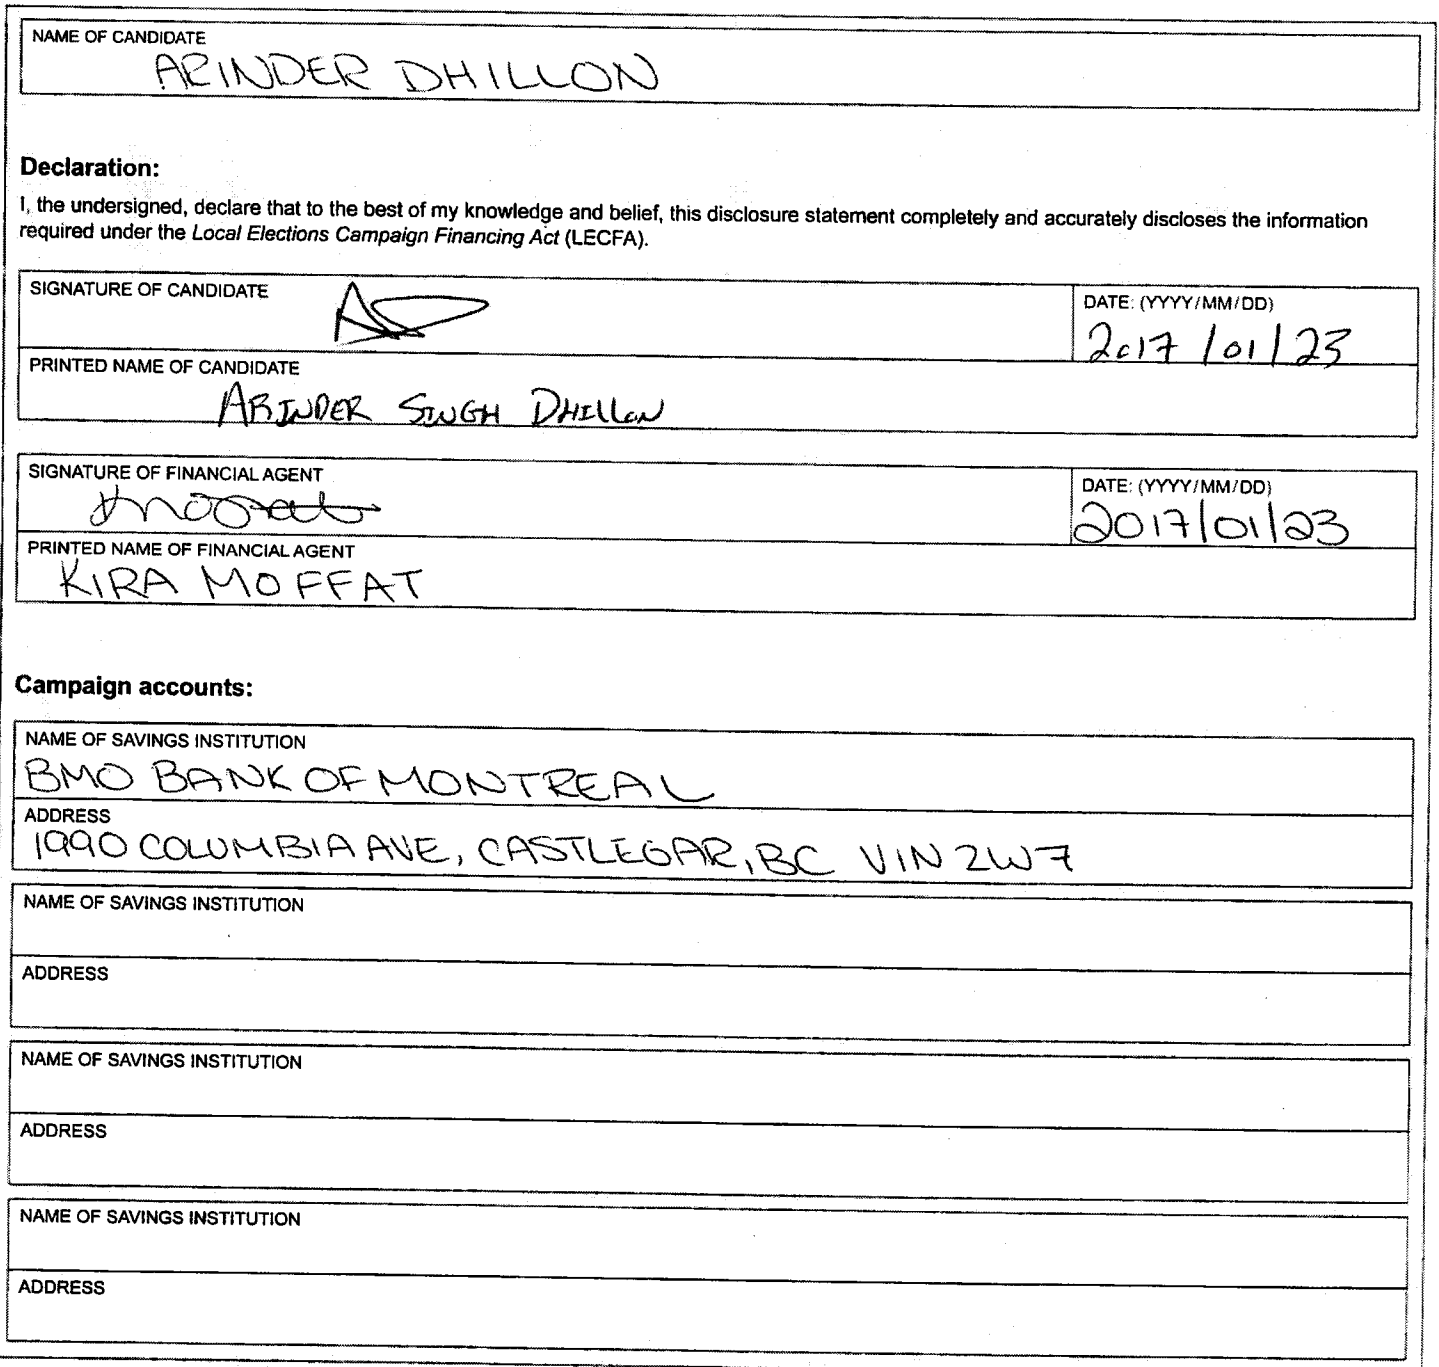 NAME OF CANDIDATE
ARINDER DHILLON
Declaration:
I, the undersigned, declare that to the best of my knowledge and belief, this disclosure statement completely and accurately discloses the information
required under the Local Elections Campaign Financing Act (LECFA).
SIGNATURE OF CANDIDATE
DATE: (YYYY/MM/DD)
2017/01/23
PRINTED NAME OF CANDIDATE
ARINDER SINGH DHILLON
SIGNATURE OF FINANCIAL AGENT
DATE: (YYYY/MM/DD)
2017/01/23
PRINTED NAME OF FINANCIAL AGENT
KIRA MOFFAT
Campaign accounts:
NAME OF SAVINGS INSTITUTION
BMO BANK OF MONTREAL
ADDRESS
1990 COLUMBIA AVE, CASTLEGAR, BC V1N 2W7
NAME OF SAVINGS INSTITUTION
ADDRESS
NAME OF SAVINGS INSTITUTION
ADDRESS
NAME OF SAVINGS INSTITUTION
ADDRESS